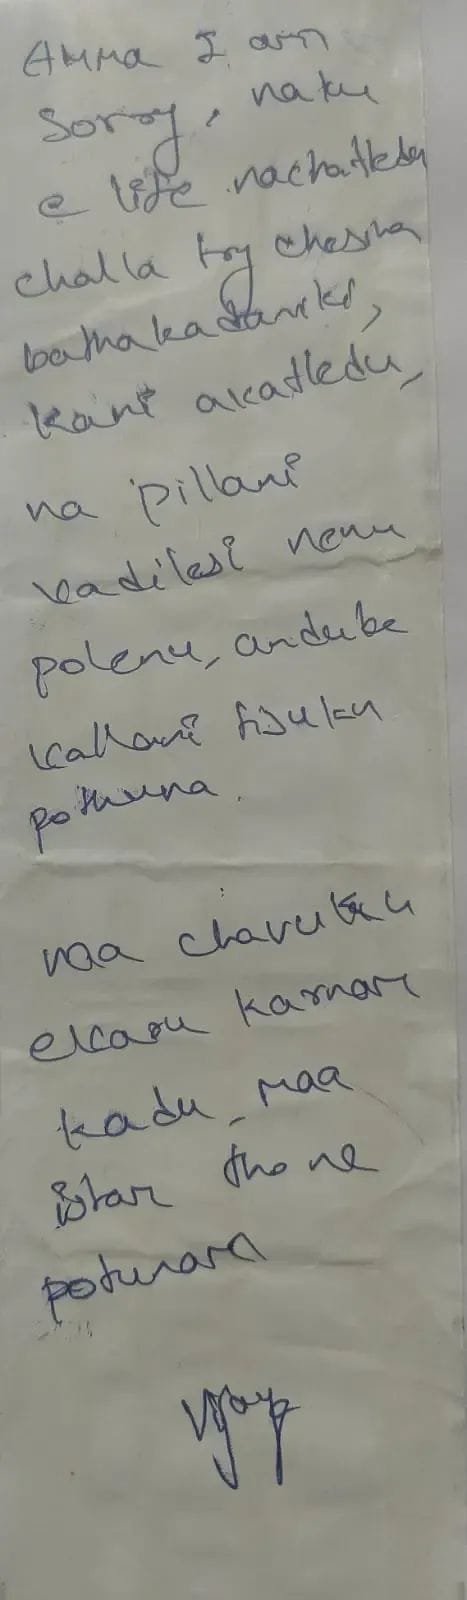 Amma I am
Sorry, naku
e life nachatledu
challa try chesina
bathakadaniki,
kani avatledu,
na pillani
vadilesi nenu
polenu, anduke
vallani tisuku
pothuna.
naa chavuku
evaru karnam
kadu, naa
istam thone
potunara
Vijay